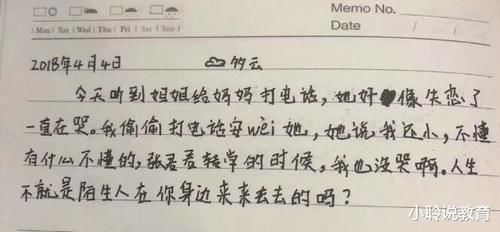 Memo No.
Mon Tue Wed Thu Fri Sat Sun Date / /
2018年4月4日 多云
今天听到姐姐给妈妈打电话，她好像失恋了
一直在哭。我偷偷打电话安wèi她，她说我还小，不懂
有什么不懂的，张君君转学的时候，我也没哭啊。人生
不就是陌生人在你身边来来去去的吗？
小聆说教育